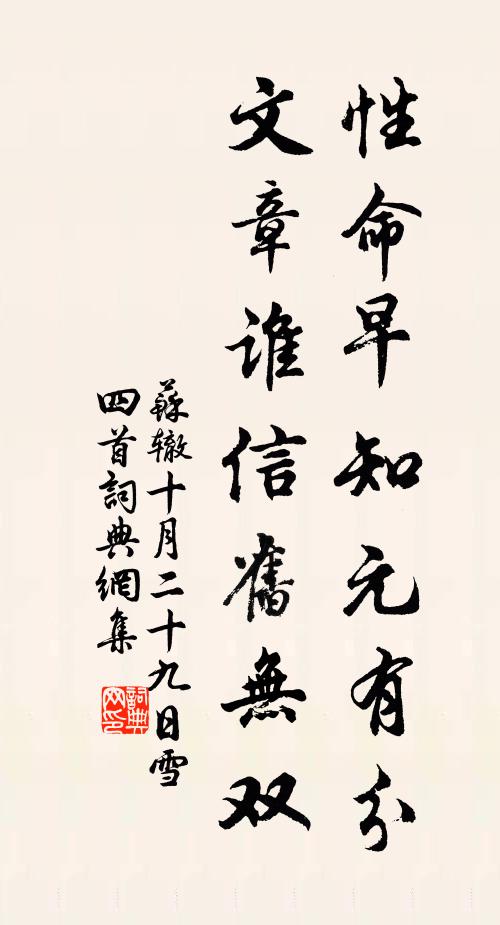 性命早知元有分
文章谁信舊無双
蘇辙十月二十九日雪
四首詞典網集
詞典
网印